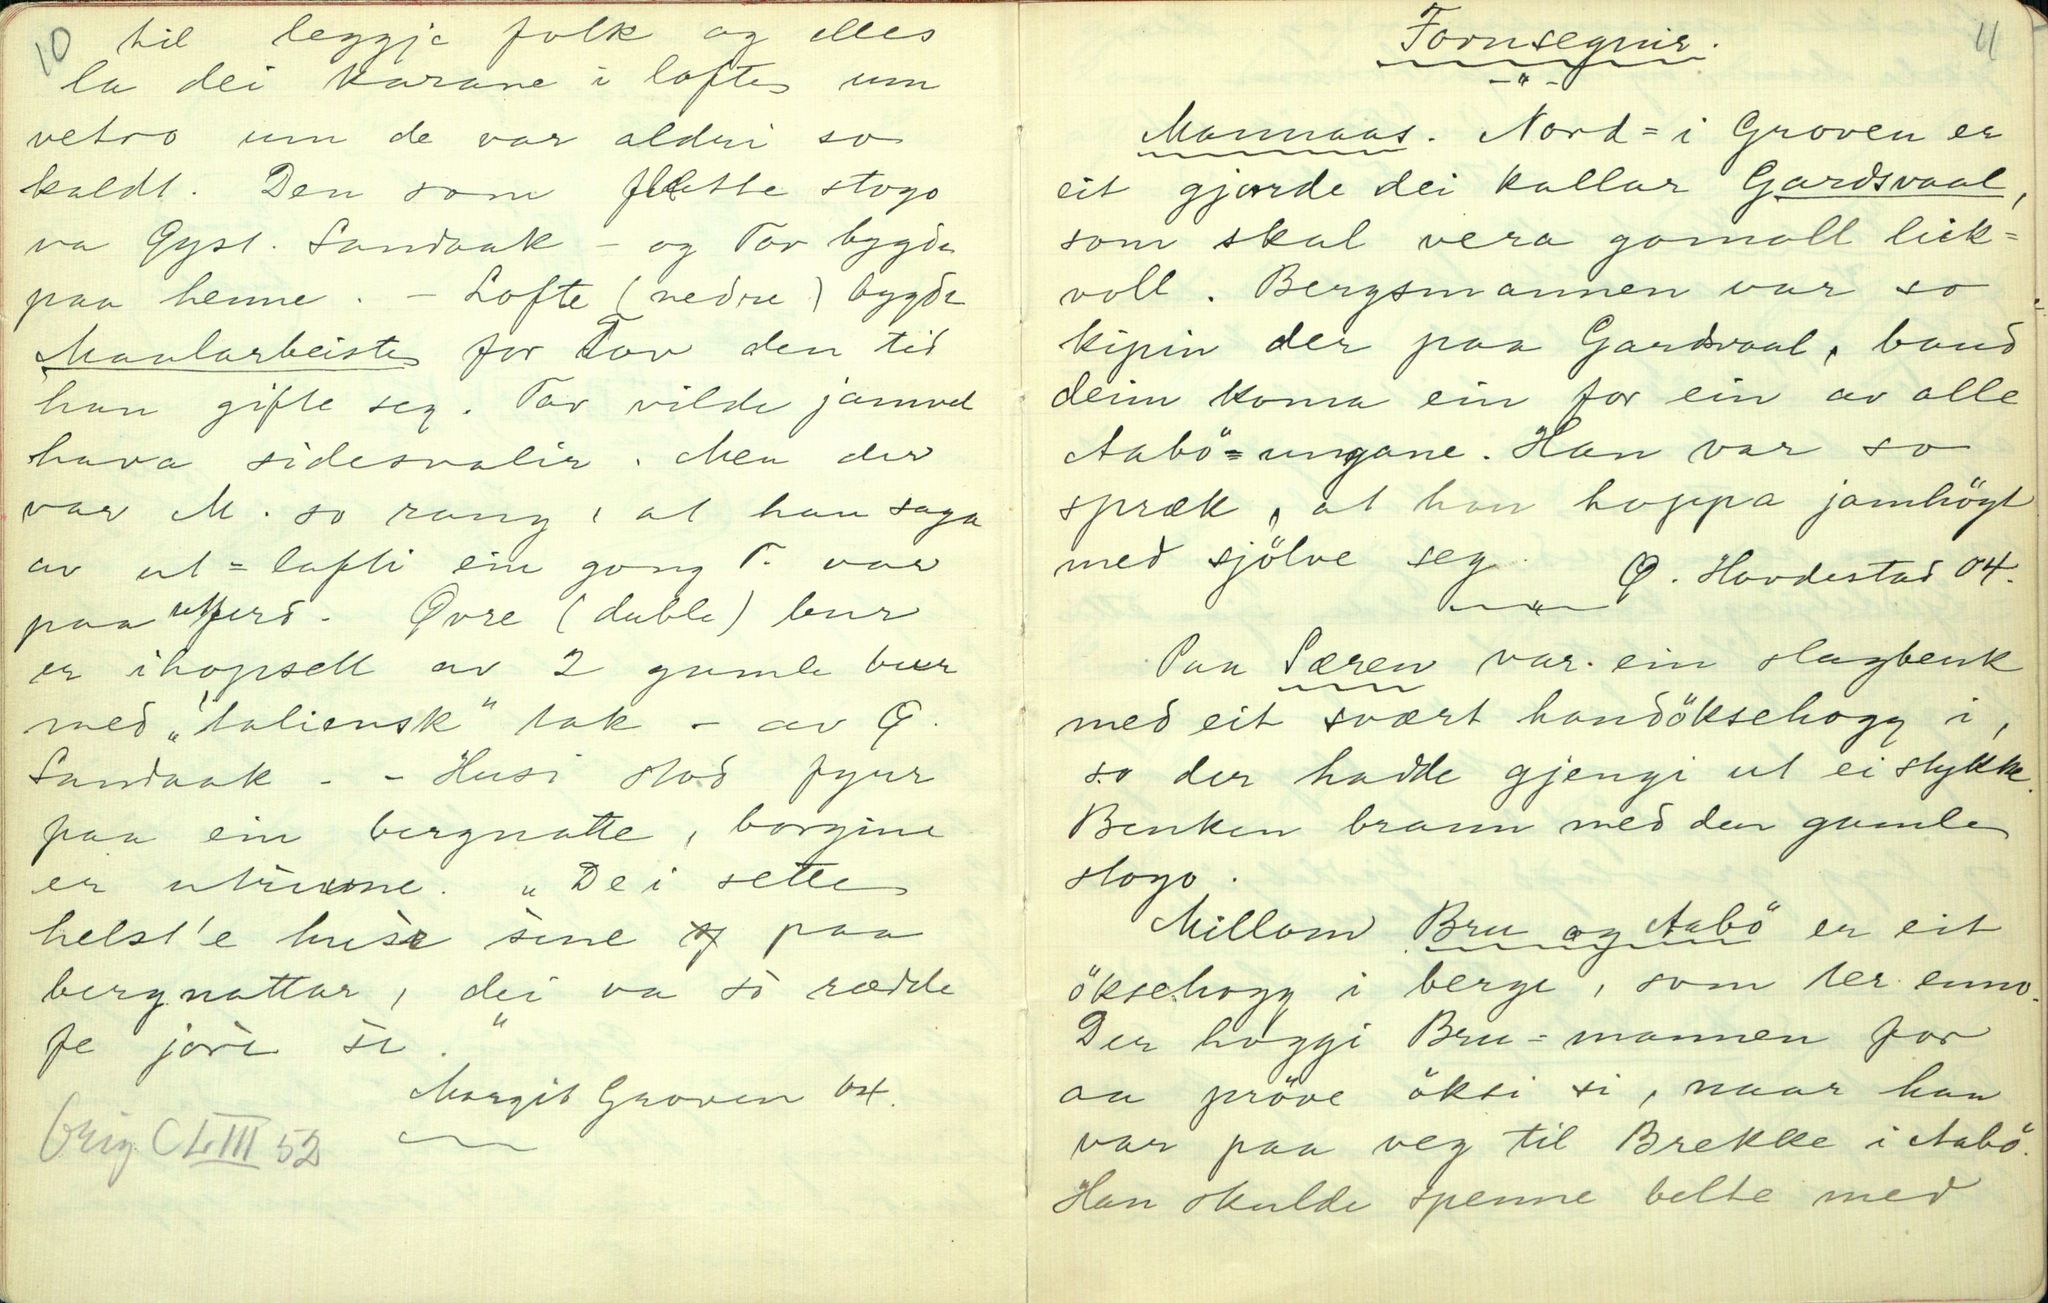 10
til leggje folk og elles
la dei karane i lofte um
vetro um de var aldri so
kaldt. Den som flutte stogo
va Gyst. Sandaak - og Tov bygde
paa henne. - Lofte (nedre) bygde
Maularbeiste for Tov den tid
han gifte seg. Tov vilde jamvel
hava sidesvalir. Men der
var M. so rang, at han saga
av ut=lofti ein gong T. var
paa utferd. Øvre (duble) bur
er ihopsett av 2 gamle buir
med "taliensk" tak - av G.
Sandaak - - Husi stod fyrr
paa ein bergnatte, borgine
er utrusne. "Dei sette
helst'e husì sine paa
bergnattar, dei va so rædde
fe jòrì si."
Margit Groven 04.
Orig. CLIII 52
11
Fornsegnir.
- " -
Mannaas. Nord=i Groven er
eit gjærde dei kallar Gardsvaal,
som skal vera gamall leik=
voll. Bergsmannen var so
kipin der paa Gardsvaal, baud
deim koma ein for ein av alle
Aabö=ungane. Han var so
spræk, at han hoppa jamhögt
med sjölve seg.
Ø. Hovdestad 04.
Paa Særen var ein slagbenk
med eit svært handöksehogg i,
so der hadde gjengi ut ei stykke.
Benken brann med den gamle
stogo.
Millom Bru og Aabö er eit
öksehogg i berge, som ter enno.
Der hoggi Bru=mannen for
aa pröve öksi si, naar han
var paa veg til Brekke i Aabö.
Han skulde spenne belte med